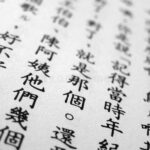 說「記得當時年紀
了，就是那個。還
伯、陳阿姨他們幾個
好不